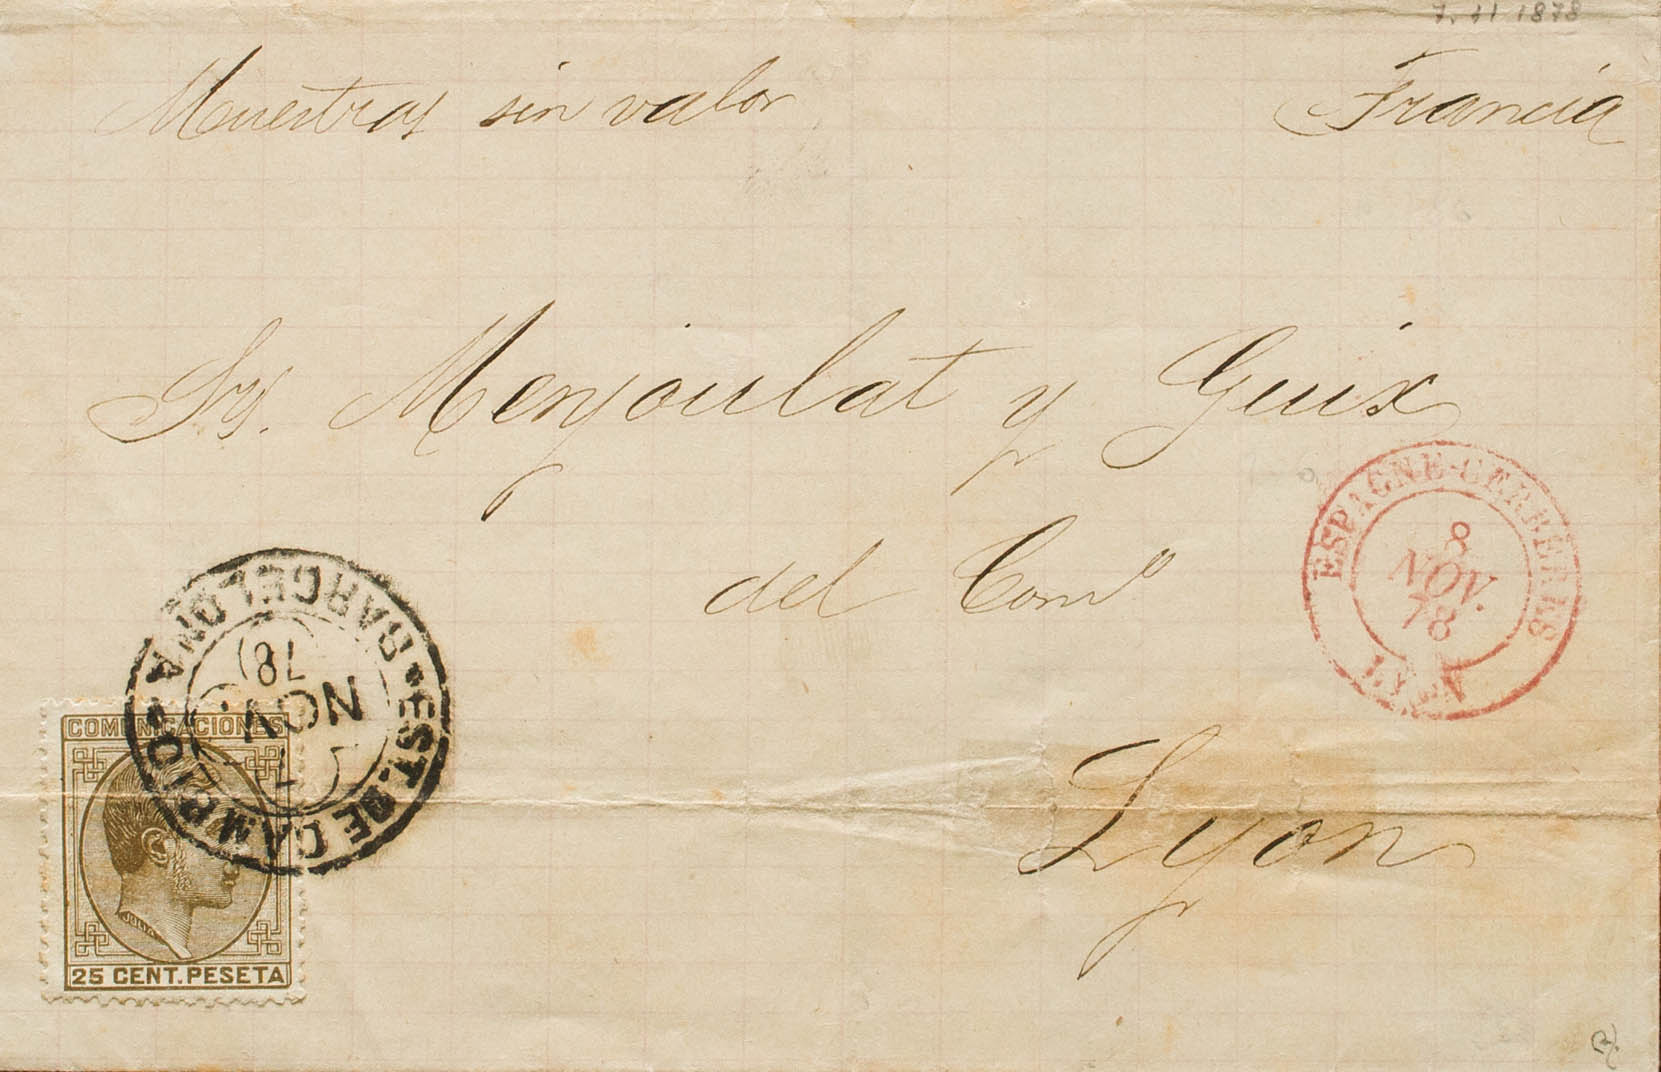 7. 11 1878
Muestras sin valor
Francia
Srs. Menjoulat y Guix
del Comº
Lyon
ESPAGNE-CERBERE
8
NOV.
78
LYON
BARCELONA
EST. DE CAMBIO
7
NOV.
78
COMUNICACIONES
JULIA
25 CENT. PESETA